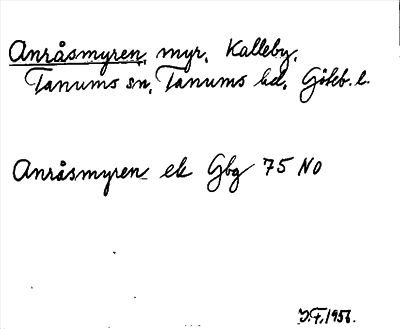 Anråsmyren, myr, Kalleby,
Tanums sn, Tanums hd, Göteb. l.
Anråsmyren ek Gbg 75 NO
J.F. 1956.